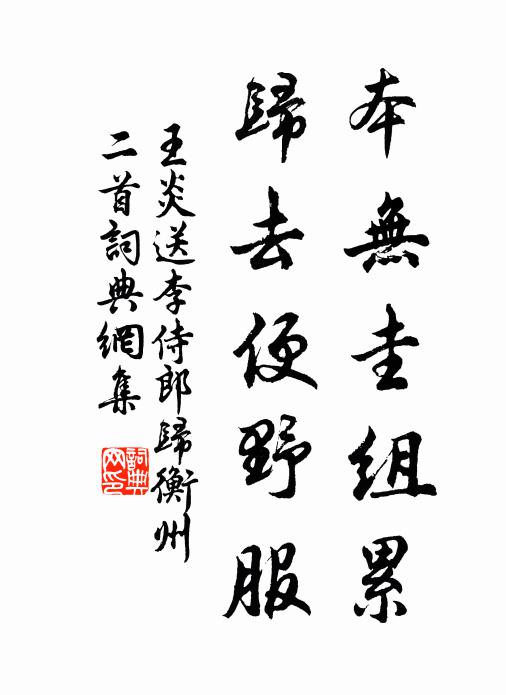 本無圭組累
歸去便野服
王炎送李侍郎歸衡州
二首詞典網集
詞典网印